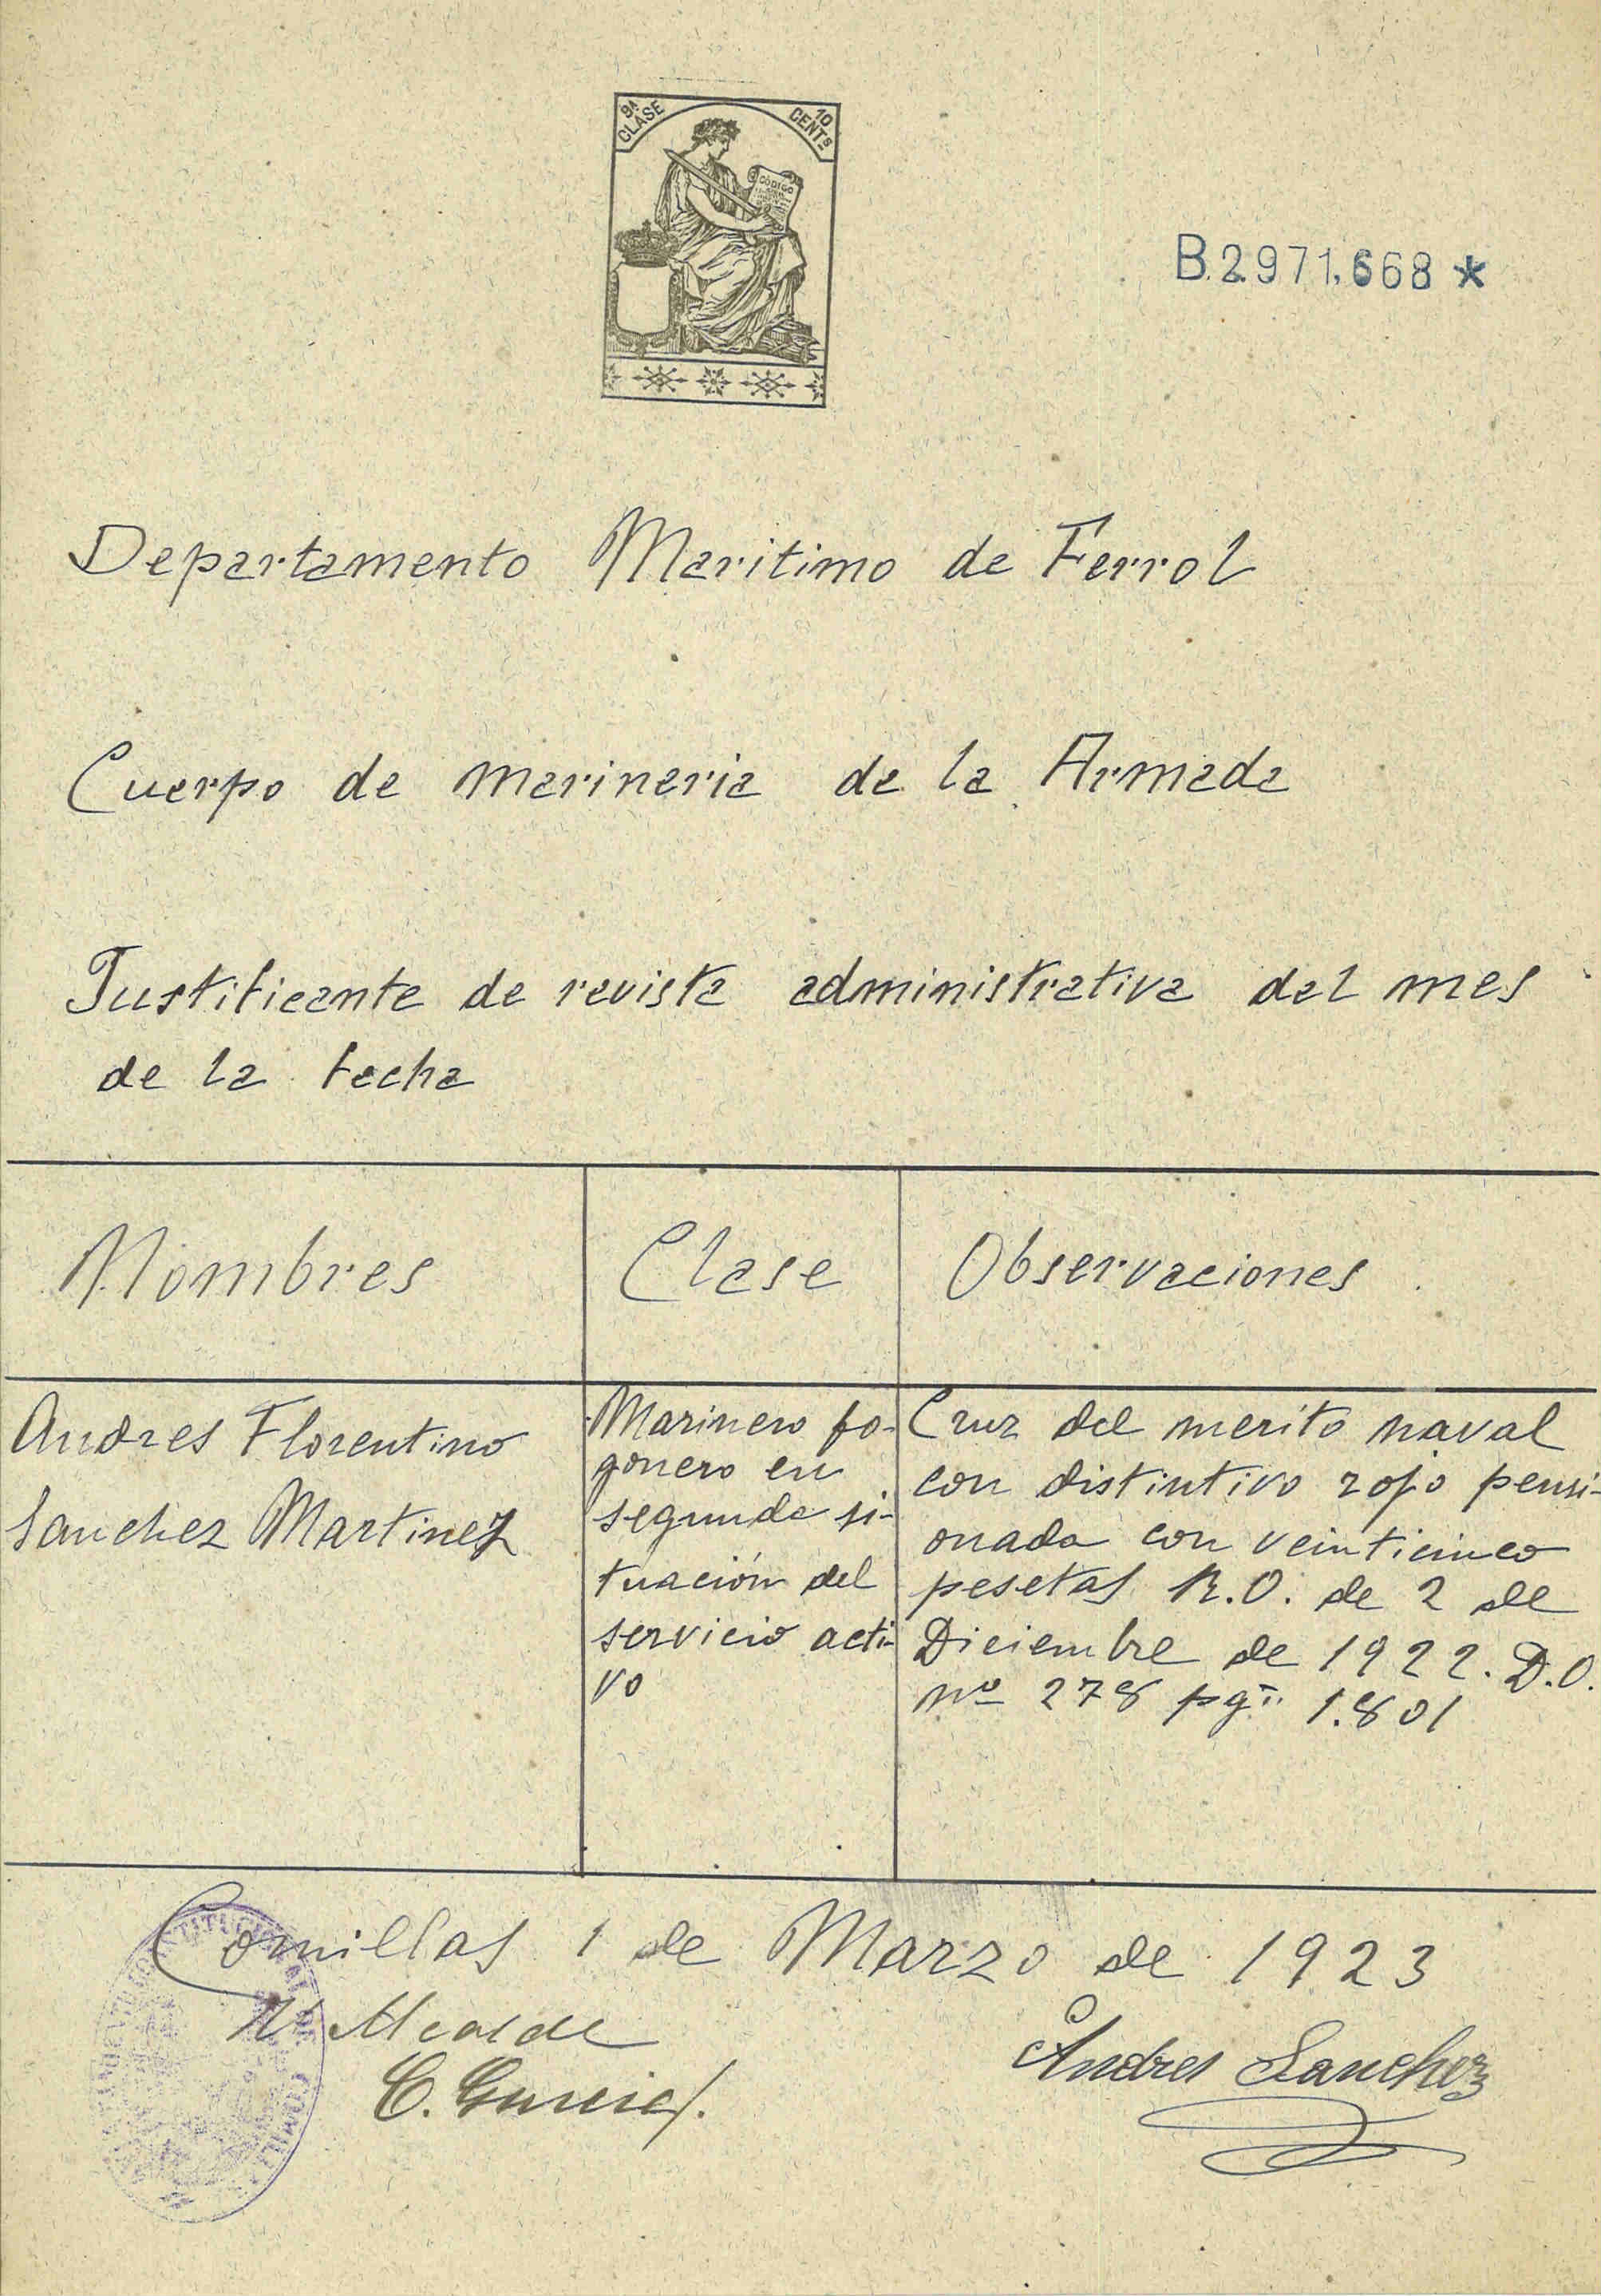 9ª CLASE
10 CENTs
CÓDIGO
B.2.971.668 *
Departamento Maritimo de Ferrol
Cuerpo de marineria de la Armada
Justificante de revista administrativa del mes
de la fecha
Nombres Clase Observaciones
Andres Florentino
Sanchez Martinez
Marinero fo-
gonero en
segunda si-
tuación del
servicio acti-
vo
Cruz del merito naval
con distintivo rojo pensi-
onada con veinticinco
pesetas R.O. de 2 de
Diciembre de 1922. D.O.
nº 278 pgª 1.801
Comillas 1 de Marzo de 1923
El Alcalde
C. Garcia
Andres Sanchez